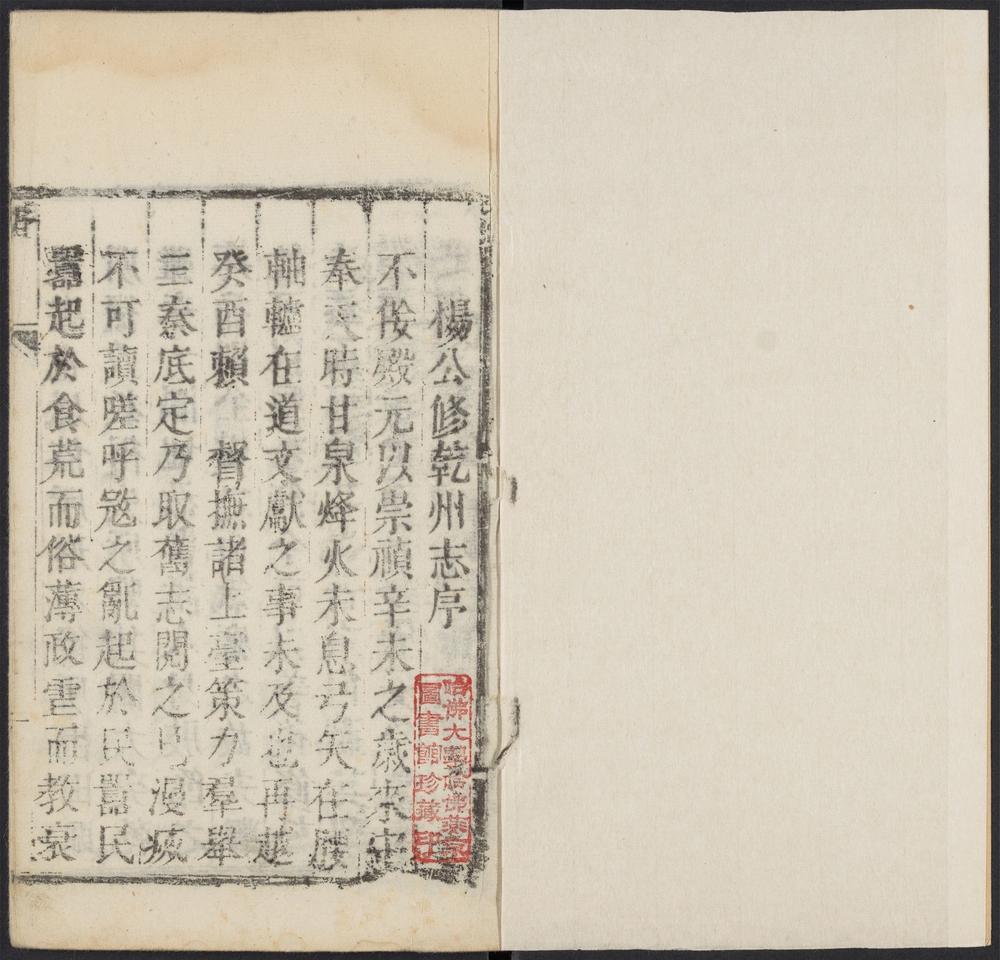 楊公修乾州志序
不佞殿元以崇禎辛未之歲來守
奉天時甘泉烽火未息弓矢在櫜
軸轤在道文獻之事未及也再越
癸酉賴 督撫諸上臺策力羣舉
三秦底定乃取舊志閱之已漫漶
不可讀嗟呼寇之亂起於民嚚民
嚚起於食荒而俗薄政霾而教衰
哈佛大學哈佛燕京
圖書館珍藏印